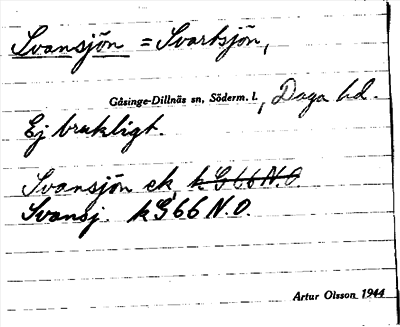 Svansjön = Svartsjön,
Gåsinge-Dillnäs sn, Söderm. l., Daga hd.
Ej brukligt.
Svansjön ek, kG66N.O.
Svansj. kG66 N.O.
Artur Olsson 1944